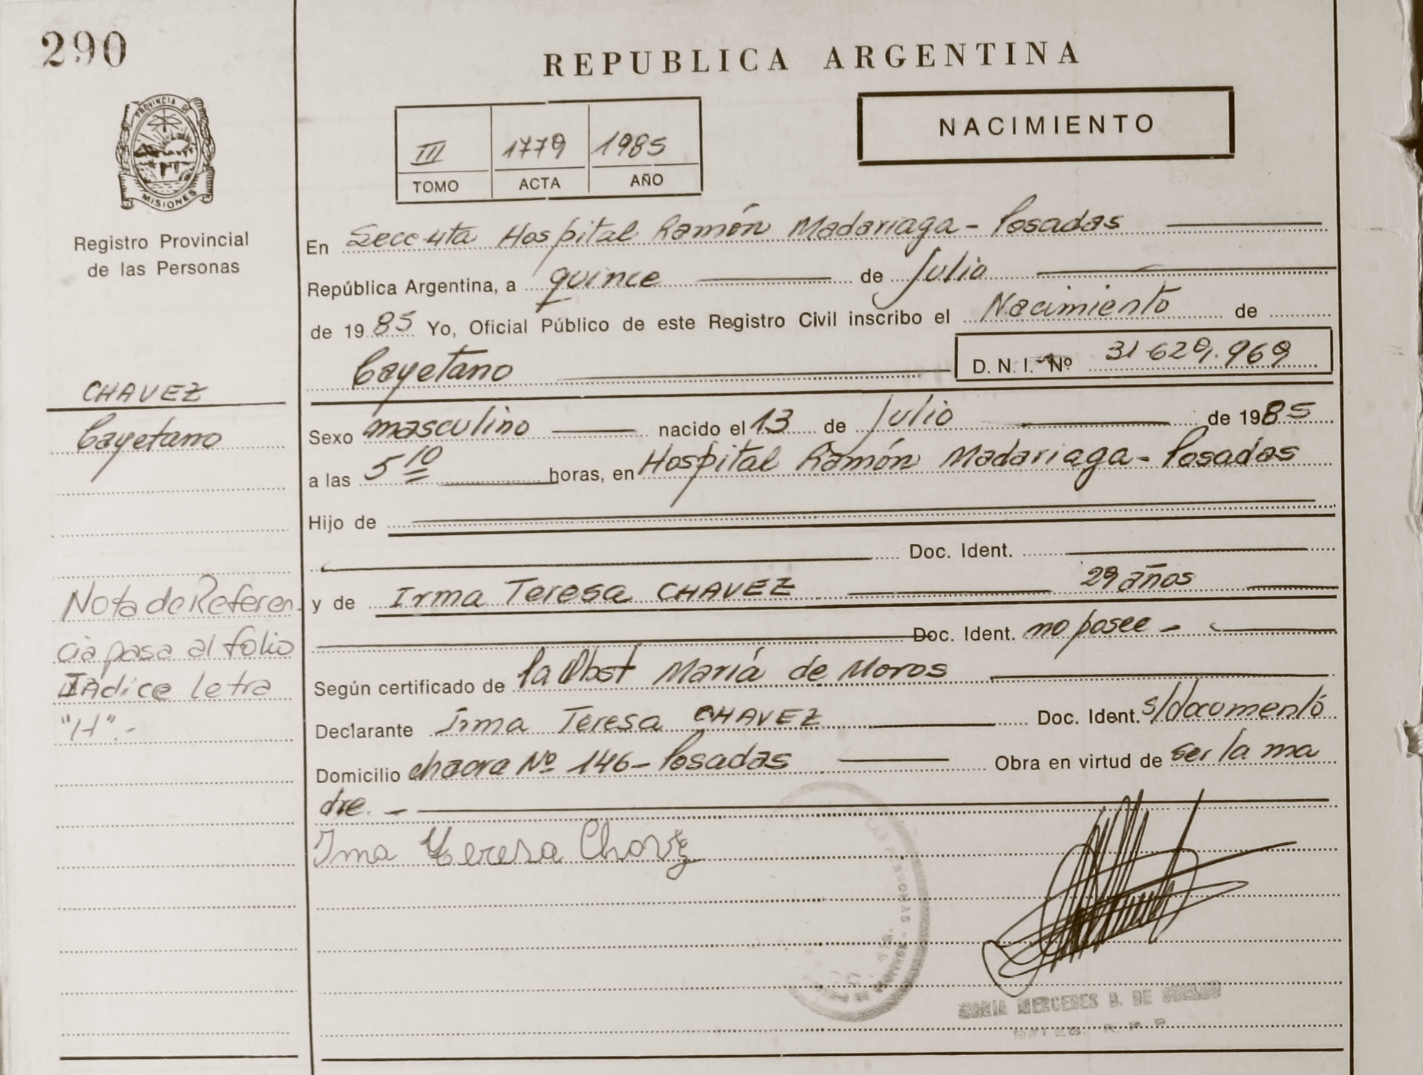 290
REPUBLICA ARGENTINA
PROVINCIA DE
MISIONES
Registro Provincial
de las Personas
III 1779 1985
TOMO ACTA AÑO
NACIMIENTO
En Secc 4ta Hospital Ramón Madariaga - Posadas
República Argentina, a quince de Julio
de 1985 Yo, Oficial Público de este Registro Civil inscribo el Nacimiento de
Cayetano D. N. I. Nº 31.629.969
CHAVEZ
Cayetano
Sexo masculino nacido el 13 de Julio de 1985
a las 5 10 horas, en Hospital Ramón Madariaga - Posadas
Hijo de
Doc. Ident.
y de Irma Teresa CHAVEZ 29 años
Doc. Ident. no posee -
Nota de Referen
cia pasa al folio
Indice letra
"H".-
Según certificado de la Obst María de Moros
Declarante Irma Teresa CHAVEZ Doc. Ident. s/documento
Domicilio chacra Nº 146 - Posadas Obra en virtud de ser la ma
dre. -
Irma Teresa Chavez
MARIA MERCEDES